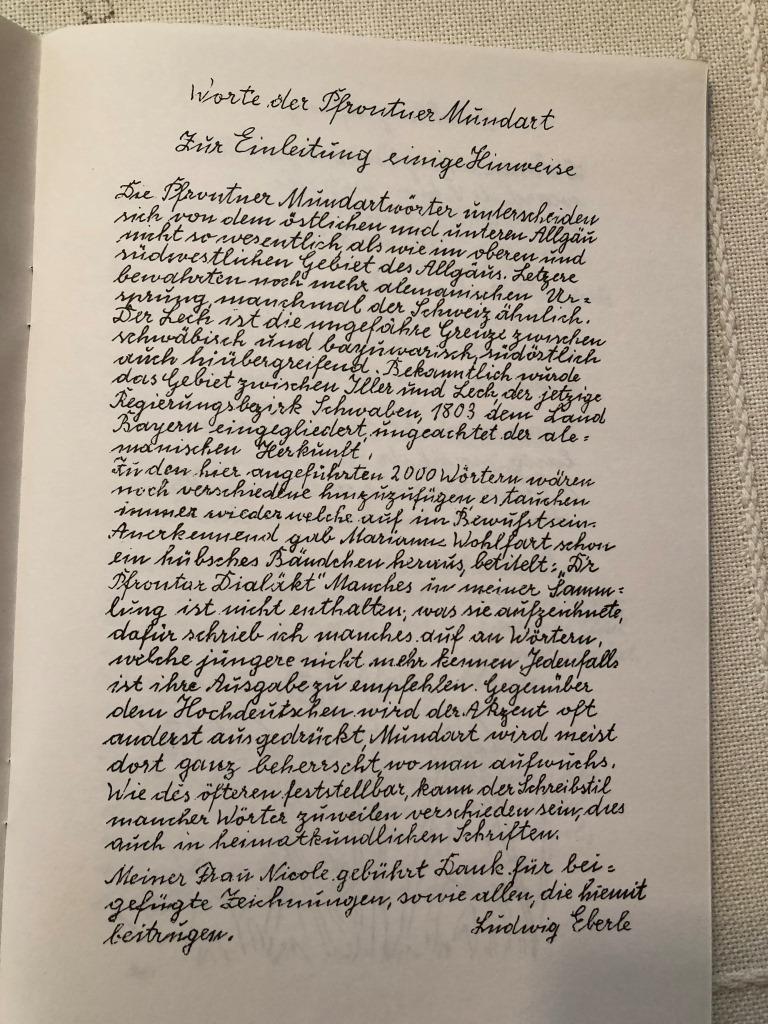 Worte der Pfrontner Mundart
Zur Einleitung einige Hinweise
Die Pfrontner Mundartwörter unterscheiden
sich von dem östlichen und unteren Allgäu
nicht so wesentlich als wie im oberen und
südwestlichen Gebiet des Allgäus. Letzere
bewahrten noch mehr alemanischen Ur=
sprung, manchmal der Schweiz ähnlich.
Der Lech ist die ungefähre Grenze zwischen
schwäbisch und bayuwarisch, südöstlich
auch hinübergreifend. Bekanntlich wurde
das Gebiet zwischen Iller und Lech, der jetzige
Regierungsbezirk Schwaben, 1803 dem Land
Bayern eingegliedert, ungeachtet der ale=
manischen Herkunft.
Zu den hier angeführten 2000 Wörtern wären
noch verschiedene hinzuzufügen, es tauchen
immer wieder welche auf im Bewußtsein.
Anerkennend gab Marianne Wohlfart schon
ein hübsches Bändchen heraus, betitelt: „Dr
Pfrontar Dialäkt" Manches in meiner Samm=
lung ist nicht enthalten, was sie aufzeichnete,
dafür schrieb ich manches auf an Wörtern,
welche jüngere nicht mehr kennen. Jedenfalls
ist ihre Ausgabe zu empfehlen. Gegenüber
dem Hochdeutschen wird der Akzent oft
anderst ausgedrückt, Mundart wird meist
dort ganz beherrscht, wo man aufwuchs.
Wie des öfteren feststellbar, kann der Schreibstil
mancher Wörter zuweilen verschieden sein, dies
auch in heimatkundlichen Schriften.
Meiner Frau Nicole gebührt Dank für bei=
gefügte Zeichnungen, sowie allen, die hiemit
beitrugen. Ludwig Eberle